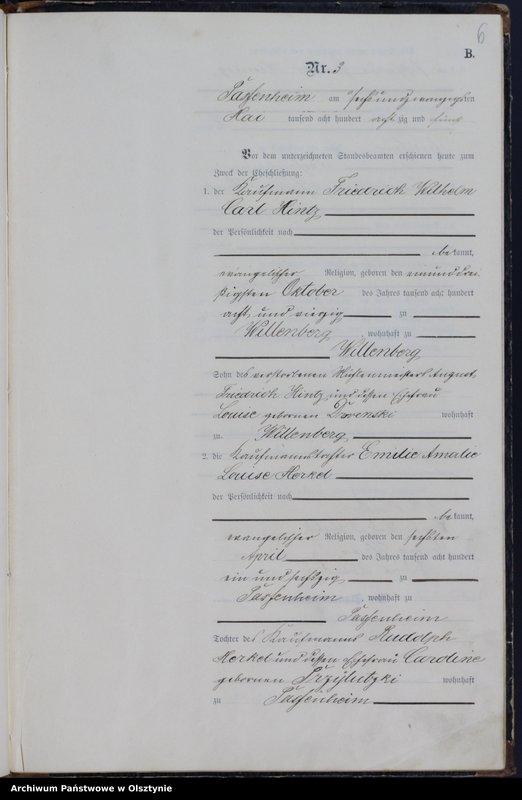 6
B.
Nr. 3
Passenheim am sechsundzwanzigsten
Mai tausend acht hundert achtzig und fünf
Vor dem unterzeichneten Standesbeamten erschienen heute zum
Zweck der Eheschließung:
1. der Kaufmann Friedrich Wilhelm
Carl Hintz
der Persönlichkeit nach
bekannt,
evangelischer Religion, geboren den einunddrei
ßigsten Oktober des Jahres tausend acht hundert
acht und vierzig zu
Willenberg, wohnhaft zu
Willenberg
Sohn des verstorbenen August
Friedrich Hintz und dessen Ehefrau
Louise geborenen wohnhaft
zu Willenberg
2. die Kaufmannstochter Emilie Amalie
Louise Herkel
der Persönlichkeit nach
bekannt,
evangelischer Religion, geboren den sechsten
April des Jahres tausend acht hundert
ein und sechszig zu
Passenheim, wohnhaft zu
Passenheim
Tochter des Kaufmanns Rudolph
Herkel und dessen Ehefrau Caroline
geborenen wohnhaft
zu Passenheim
Archiwum Państwowe w Olsztynie